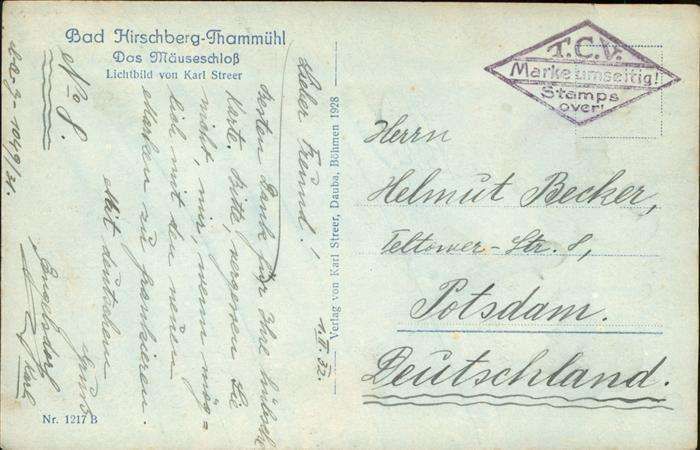 Bad Hirschberg-Thammühl
Das Mäuseschloß
Lichtbild von Karl Streer
T.C.V.
Marke umseitig!
Stamps
over!
No 8.
1.II.32.
Lieber Freund!
Besten Dank für Ihre hübsche
Karte. Bitte, vergessen Sie
nicht, mir, wenn mög=
lich mit den neuen
Marken zu frankieren.
Mit deutschem
Gruß
Karl
Verlag von Karl Streer, Dauba, Böhmen 1928
Herrn
Helmut Becker,
Teltower-Str. 8,
Potsdam.
Deutschland.
Nr. 1217 B